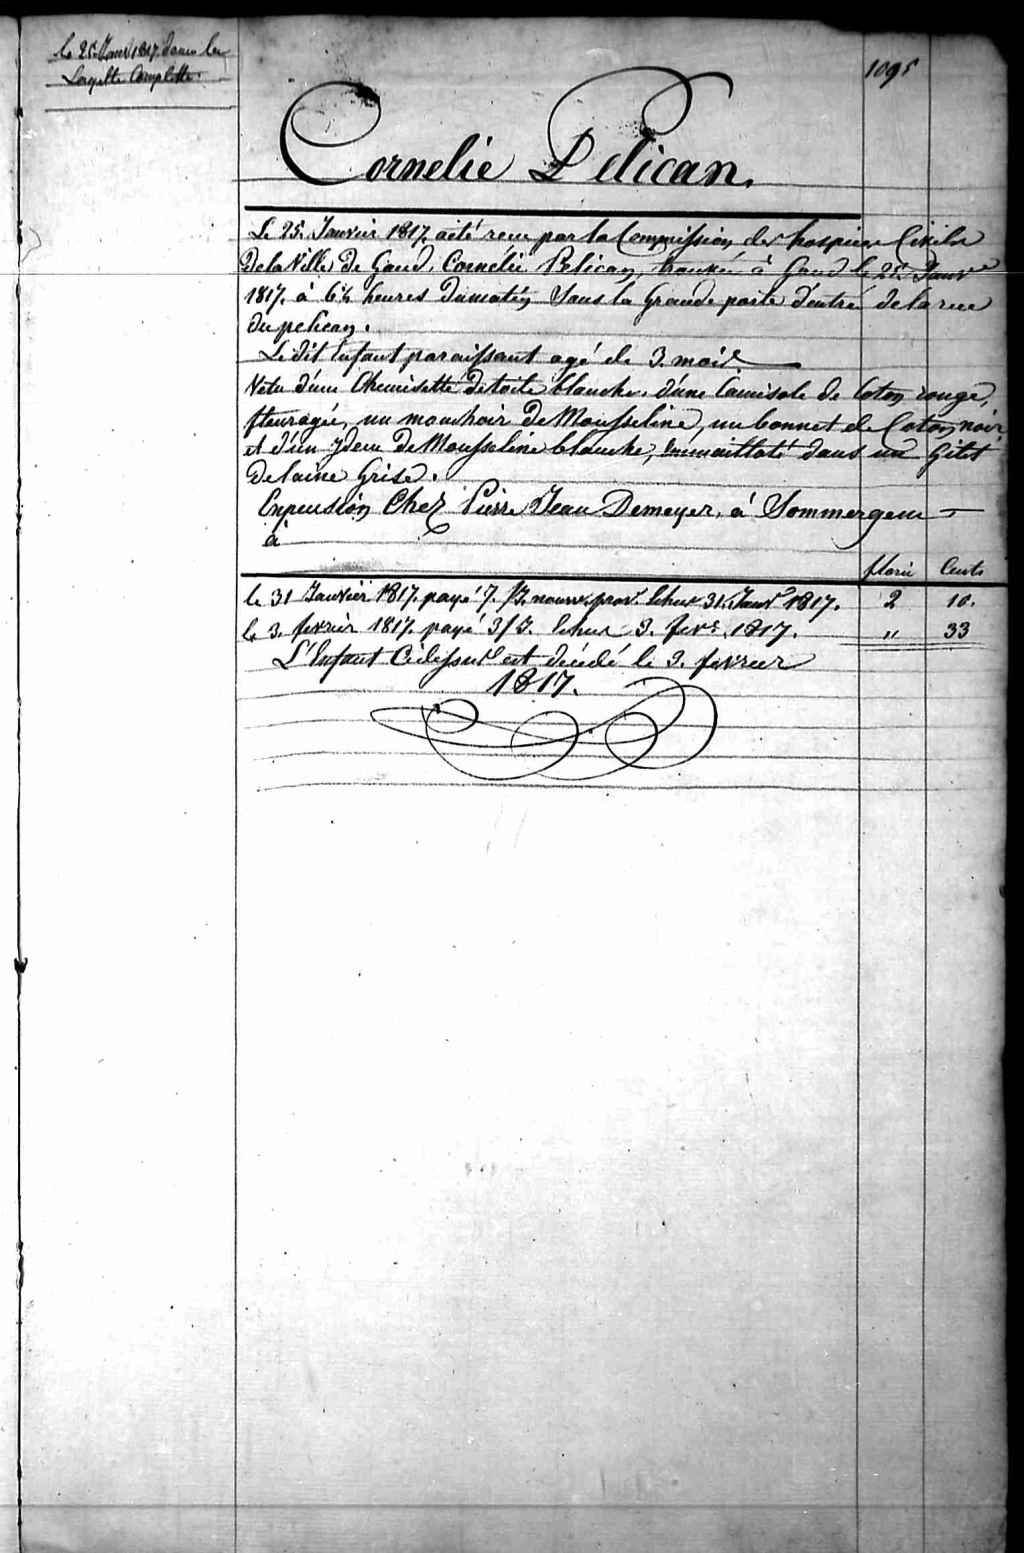 le 25 Janv 1817. donné la
Layette Complette.
1095
Cornelie Pelican.
Le 25. Janvier 1817. a été reçu par la Commission des hospices Civils
de la Ville de Gand, Cornélie Pelican, trouvée à Gand le 25. Janvr
1817. à 6½ heures du matin sous la Grande porte d'entré de la rue
du pelican.
Le dit Enfant paraissant agé de 3. mois
Vetu d'une Chemisette de toile blanche, d'une Camisole de Coton rouge,
fleuragée, un mouchoir de Mousseline, un bonnet de Coton noir
et d'un ydem de Mousseline blanche, Emmailloté dans un Gilet
de laine Grise.
En pension Chez Pierre Jean Demeyer, à Sommergem
à
florin Cents
le 31 Janvier 1817. payé 7. /J. nourr. prov. Echus 31. Janvr 1817. 2 10.
le 3. fevrier 1817. payé 3/J. Echus 3. fevr. 1817. " 33
L'Enfant Cidessus est décédé le 3. fevrier
1817.